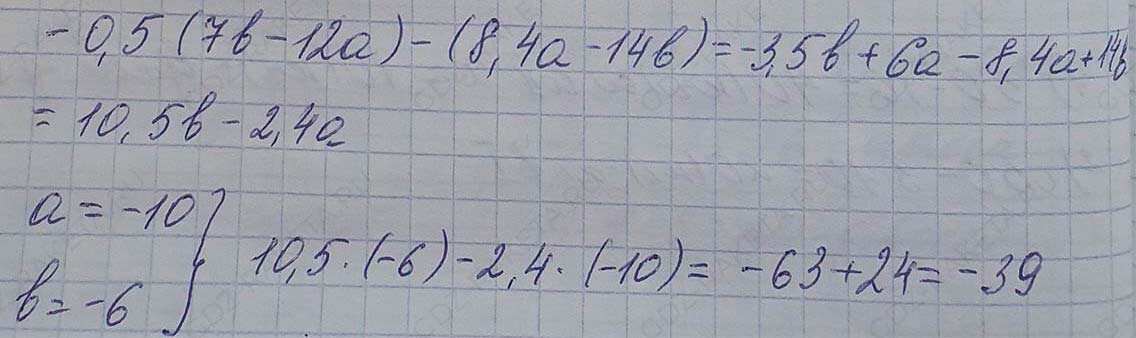 -0,5(7в-12а)-(8,4а-14в)=-3,5в+6а-8,4а+14в
=10,5в-2,4а
а=-10
в=-6
10,5·(-6)-2,4·(-10)=-63+24=-39